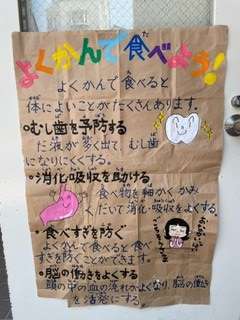 よくかんで食べよう!
よくかんで食べると
体によいことがたくさんあります。
・むし歯を予防する
だ液が多く出て、むし歯
になりにくくする。
・消化・吸収を助ける
食べ物を細かくかみ
くだいて消化・吸収をよくする。
・食べすぎを防ぐ
よくかんで食べると食べ
すぎを防ぐことができます。
・脳の働きをよくする
頭の中の血の流れがよくなり、脳の働き
を活発にする。